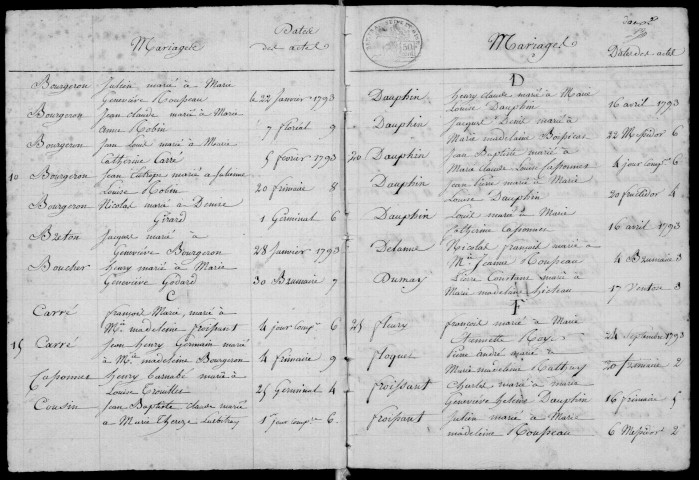 Mariages
Dates
des actes
Bourgeron Julien marié à Marie
Geneviève Rousseau le 22 Janvier 1793
Bourgeron Jean Claude marié à Marie
Anne Robin 7 floréal 9
Bourgeron Jean Louis marié à Marie
Catherine Carré 5 février 1793
10 Bourgeron Jean marié à Julienne
Louise Robin 20 frimaire 8
Bourgeron Nicolas marié à Denise
Girard 1 Germinal 6
Breton Jacques marié à
Geneviève Bourgeron 28 Janvier 1793
Boucher henry marié à Marie
Geneviève Godard 30 Brumaire 7
C
Carré françois Marie marié à
Mie madeleine froissant 4 jour comp. 6
15 Carré Jean henry Germain marié
à Mie madeleine Bourgeron 4 frimaire 9
Caponnet henry Barnabé marié à
Louise 25 Germinal 4
Cousin Jean Baptiste Claude marié
à Marie Thereze 1er jour comp. 6
Mariages
Dates des actes
D
Dauphin henry Claude marié à Marie
Louise Dauphin 16 avril 1793
Dauphin Jacques Denis marié à
Marie madelaine 22 Messidor 6
20 Dauphin Jean Baptiste marié à
Marie claude Louise Caponnet 4 jour comp. 6
Dauphin Jean Pierre marié à Marie
Louise Dauphin 20 fructidor 4
Dauphin Louis marié à Marie
Catherine Caponnet 16 avril 1793
Delanue Nicolas françois marié à
Mie Jeanne Rousseau 4 Brumaire 3
Dumay Pierre Constant marié à
Marie madeleine 17 Ventose 3
F
25 fleury françois marié à Marie
Etiennette Roy 24 septembre 1793
floquet Pierre andré marié à
Marie Madeleine 20 frimaire 2
froissant Charles marié à marie
Geneviève helene Dauphin 16 frimaire 5
froissant Julien marié à Marie
madeleine Rousseau 6 Messidor 2